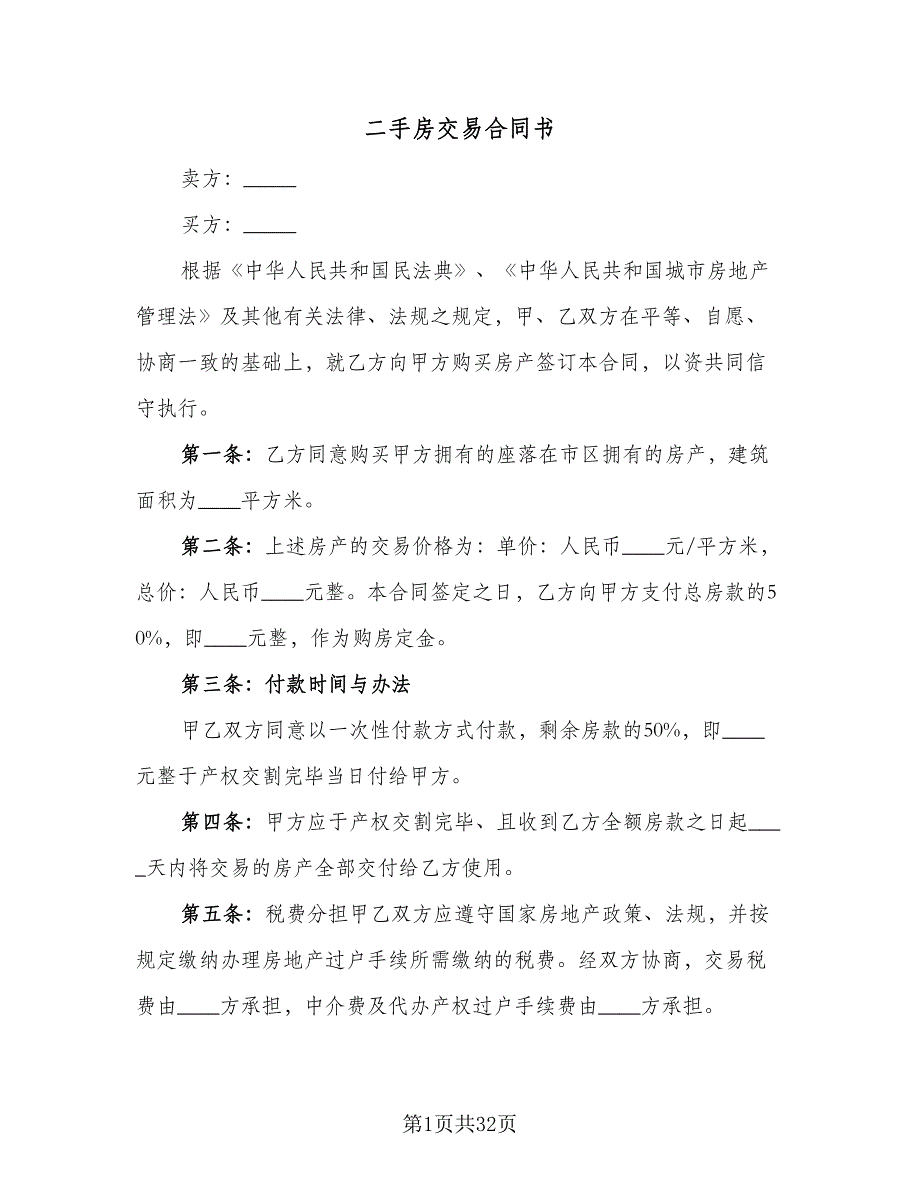 二手房交易合同书
卖方：_____
买方：_____
根据《中华人民共和国民法典》、《中华人民共和国城市房地产
管理法》及其他有关法律、法规之规定，甲、乙双方在平等、自愿、
协商一致的基础上，就乙方向甲方购买房产签订本合同，以资共同信
守执行。
第一条：乙方同意购买甲方拥有的座落在市区拥有的房产，建筑
面积为____平方米。
第二条：上述房产的交易价格为：单价：人民币____元/平方米，
总价：人民币____元整。本合同签定之日，乙方向甲方支付总房款的5
0%，即____元整，作为购房定金。
第三条：付款时间与办法
甲乙双方同意以一次性付款方式付款，剩余房款的50%，即____
元整于产权交割完毕当日付给甲方。
第四条：甲方应于产权交割完毕、且收到乙方全额房款之日起___
_天内将交易的房产全部交付给乙方使用。
第五条：税费分担甲乙双方应遵守国家房地产政策、法规，并按
规定缴纳办理房地产过户手续所需缴纳的税费。经双方协商，交易税
费由____方承担，中介费及代办产权过户手续费由____方承担。
第1页共32页